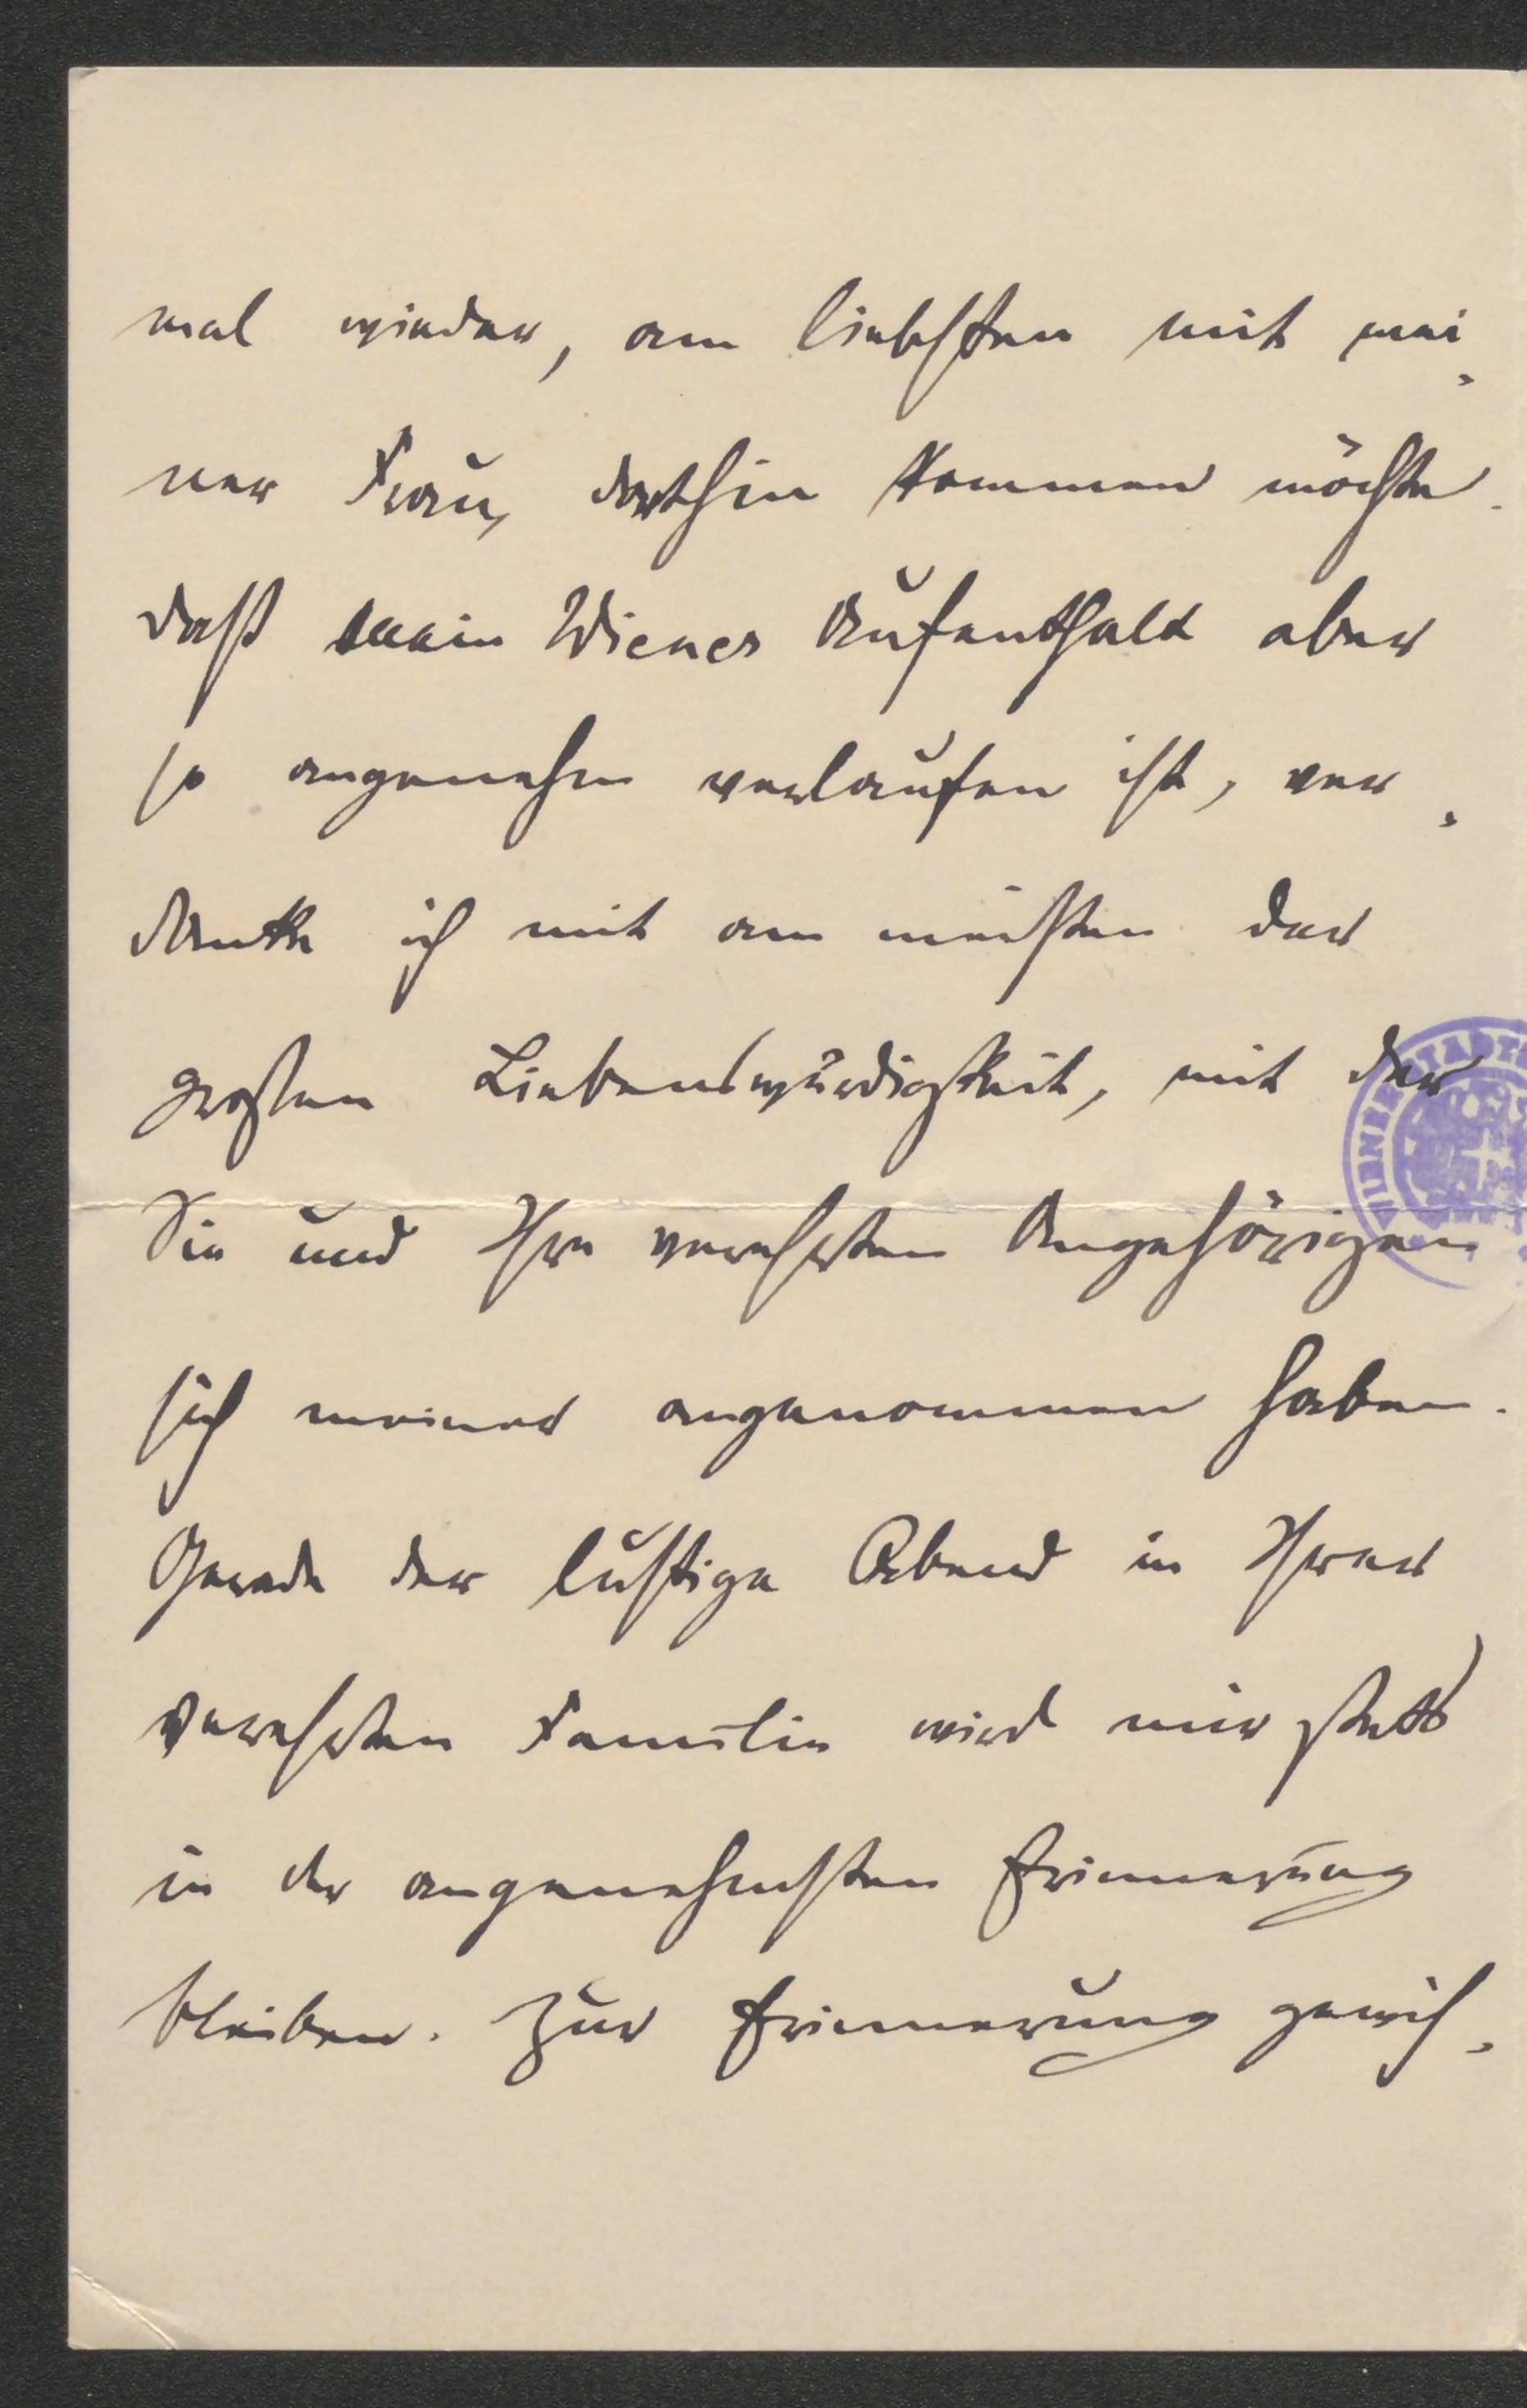 mal wieder, am liebsten mit mei-
ner Frau, dorthin kommen möchte.
Daß mein Wiener Aufenthalt aber
so angenehm verlaufen ist, ver-
danke ich mit am meisten der
großen Liebenswürdigkeit, mit der
Sie und Ihre verehrten Angehörigen
sich meiner angenommen haben.
Gerade der lustige Abend in Ihrer
verehrten Familie wird mir stets
in der angenehmsten Erinnerung
bleiben. Zur Erinnerung gewis-
WIENER STADT